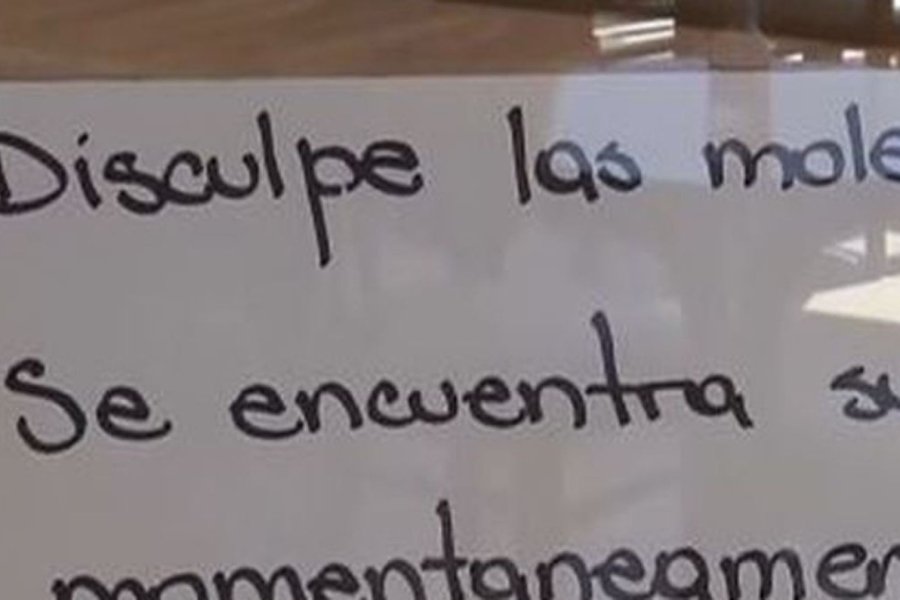 Disculpe las mole
Se encuentra su
momentaneamen